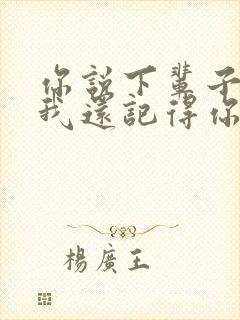 你說下輩子
我還記得你
楊廣王